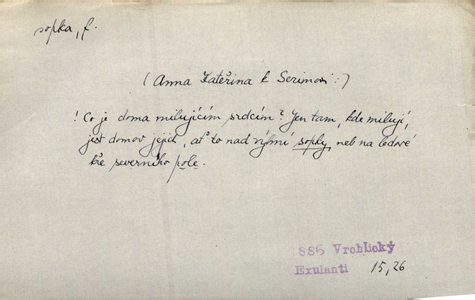 sopka, f.
(Anna Kateřina k Sezimovi:)
! Co je doma milujícím srdcím? Jen tam, kde milují,
jest domov jejich, ať to nad výhní sopky, neb na ledové
kře severního pole.
886 Vrchlický
Exulanti 15, 26